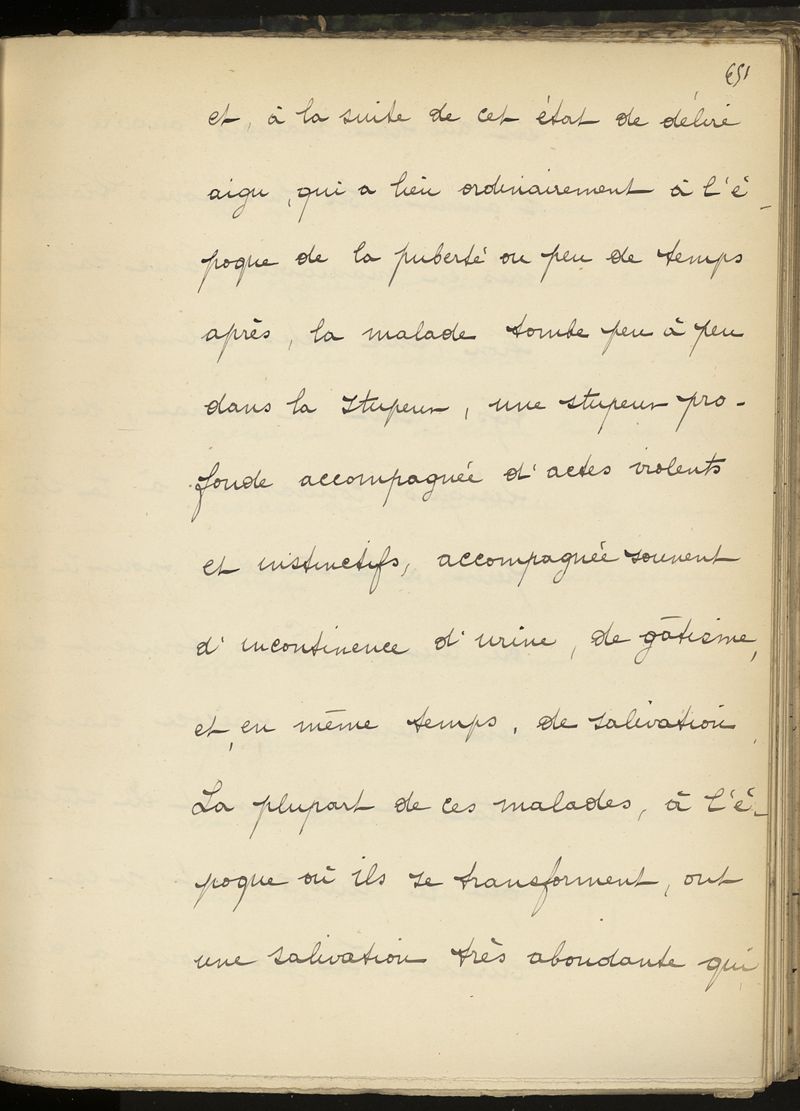 651
et, à la suite de cet état de délire
aigu, qui a lieu ordinairement à l'é-
poque de la puberté ou peu de temps
après, la malade tombe peu à peu
dans la stupeur, une stupeur pro-
fonde accompagnée d'actes violents
et instinctifs, accompagnée souvent
d'incontinence d'urine, de gâtisme,
et, en même temps, de salivation.
La plupart de ces malades, à l'é-
poque où ils se transforment, ont
une salivation très abondante qui